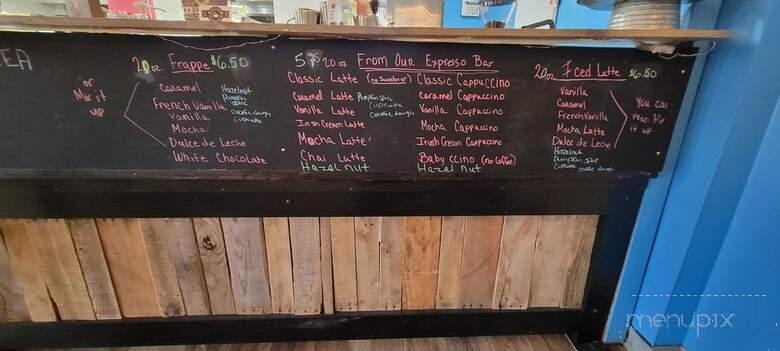 EA
or
Mix it
up
20oz Frappe $6.50
Caramel
French Vanilla
Vanilla
Mocha
Dulce de Leche
White Chocolate
Hazelnut
Pumpkin
Spice
Cookie dough
Cupcake
20oz From Our Expresso Bar
Classic Latte (no Sweetener)
Caramel Latte
Vanilla Latte
Irish Cream Latte
Mocha Latte
Chai Latte
Hazel nut
Pumpkin Spice
Cupcake
Cookie dough
Classic Cappuccino
Caramel Cappuccino
Vanilla Cappuccino
Mocha Cappuccino
Irish Cream Cappuccino
Baby ccino (no Coffee)
Hazel nut
20oz Iced Latte $6.50
Vanilla
Caramel
French Vanilla
Mocha Latte
Dulce de Leche
Hazelnut
Pumpkin Spice
Cupcake
Cookie dough
You can
also Mix
it up
menupix